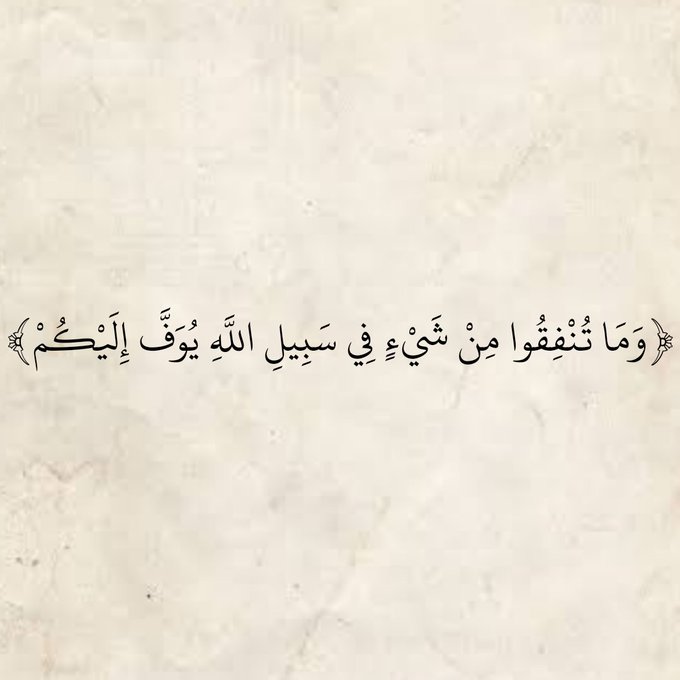 ﴿وَمَا تُنْفِقُوا مِنْ شَيْءٍ فِي سَبِيلِ اللَّهِ يُوَفَّ إِلَيْكُمْ﴾